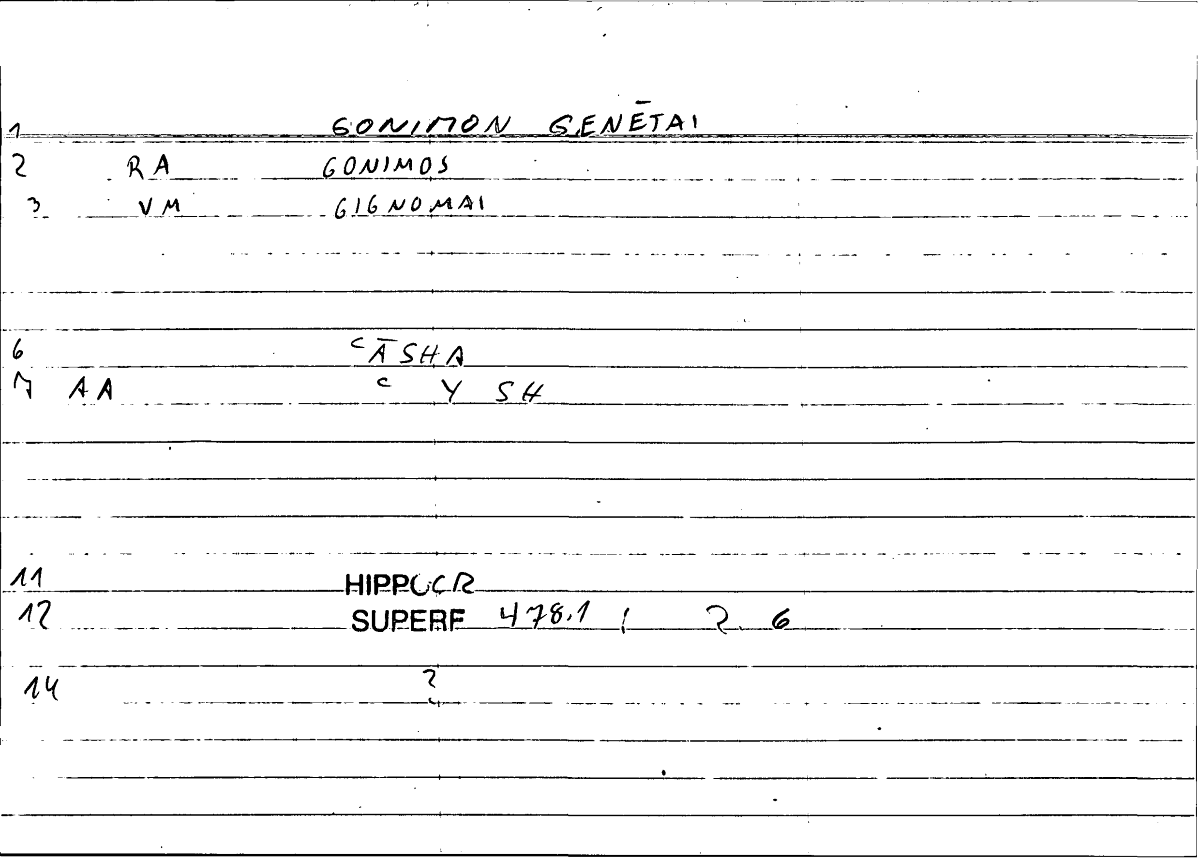 1 GONIMON GENĒTAI
2 RA GONIMOS
3 VM GIGNOMAI
6 ʿĀSHA
7 AA ʿ Y SH
11 HIPPOCR
12 SUPERF 478.1 / 2. 6
14 2